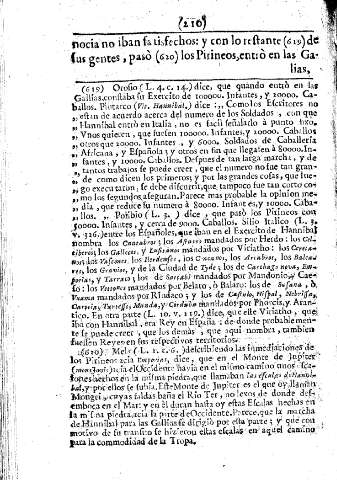 (210)
nocia no iban satisfechos: y con lo restante (619) de
sus gentes, pasò (620) los Pirineos, entrò en las Ga-
lias,
(619) Orosio (L. 4. c. 14.) dice, que quando entrò en las
Gallias, constaba su Exercito de 100000. Infantes, y 20000. Ca-
ballos. Plutarco (Vit. Hannibal.) dice: „ Como los Escritores no
„ estàn de acuerdo acerca del numero de los Soldados, con que
„ Hannibal entrò en Italia, no es facil señalarlo à punto fixo.
„ Unos quieren, que fuessen 100000. Infantes, y 20000. Caballos
„ otros que 20000. Infantes, y 6000. Soldados de Caballeria
„ Africana, y Española y otros en fin que llegaban à 80000. In-
„ fantes, y 10000. Caballos. Despues de tan larga marcha, y de
„ tantos trabajos se puede creer, que el numero no fue tan gran-
„ de como dicen los primeros; y por las grandes cosas, que lue-
„ go executaron, se debe discurrir, que tampoco fue tan corto co-
„ mo los segundos asseguran. Parece mas probable la opinion me-
„ dia, que reduce su numero à 80000. Infantes, y 10000. Caba-
„ llos. „ Polibio (L. 3.) dice; que pasò los Pirineos con
50000. Infantes, y cerca de 9000. Caballos. Silio Italico (L. 3.
v. 326.) entre los Españoles, que iban en el Exercito de Hannibal
nombra los Cantabros; los Astures mandados por Herdo: los Cel-
tiberos; los Gallegos, y Lusitanos mandados por Viriatho: los Cerreta-
nos; los Vascones los Ilerdenses, los Concanos, los Arbacos, los Balea-
res, los Gravios, y de la Ciudad de Tyde; los de Carthago nova, Em-
porias, y Tarraco; los de Saetabi mandados por Mandonio, y Cae-
so: los Vettones mandados por Belaro, ò Balaro: los de
Uxama mandados por Rindaco; y los de Castulo, Hispal, Nebrissa,
Carteia, Tartesso, Munda, y Corduba mandados por Phorcis, y Arau-
rico. En otra parte (L. 10. v. 219.) dice, que este Viriatho, que
iba con Hannibal, era Rey en España; de donde probablemen-
te se puede creer, que los demàs, que aqui nombra, tambien
fuessen Reyes en sus respectivos territorios.
(620) Mela (L. 2. c. 6.) describiendo las inmediaciones de
los Pirineos acia Emporias, dice, que en el Monte de Jupiter
acia el Occidente havia en el mismo camino unos esca-
lones hechos en la misma piedra, que llamaban las escalas de Hannibal,
y por ellos se subia. Este Monte de Jupiter es el que oy llaman
Mongri, cuyas faldas baña el Rio Ter, no lexos de donde de-
semboca en el Mar: y en èl duran hasta oy estas Escalas hechas en
la misma piedra, acia la parte de Occidente. Parece, que la marcha
de Hannibal para las Gallias se dirigiò por esta parte; y que con
motivo de su transito se hicieron estas escalas en aquel camino
para la commodidad de la Tropa.